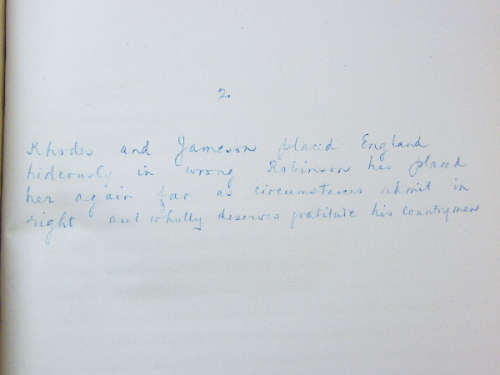 2.
Rhodes and Jameson placed England
hideously in wrong Robinson has placed
her again far as circumstances admit in
right and wholly deserves gratitude his countrymen